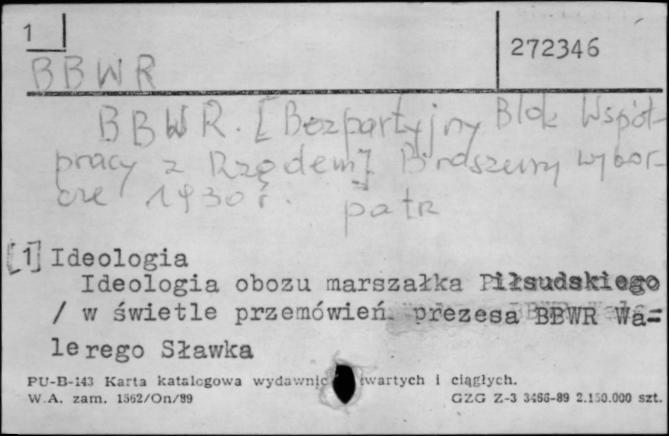 1
272346
BBWR
BBWR. [Bezpartyjny Blok Współ-
pracy z Rządem]. Broszury wybor-
cze 1930 r. patrz
[1] Ideologia
Ideologia obozu marszałka Piłsudskiego
/ w świetle przemówień prezesa BBWR Wa=
lerego Sławka
PU-B-143 Karta katalogowa wydawnic twartych i ciągłych.
W.A. zam. 1562/On/89 GZG Z-3 3466-89 2.150.000 szt.